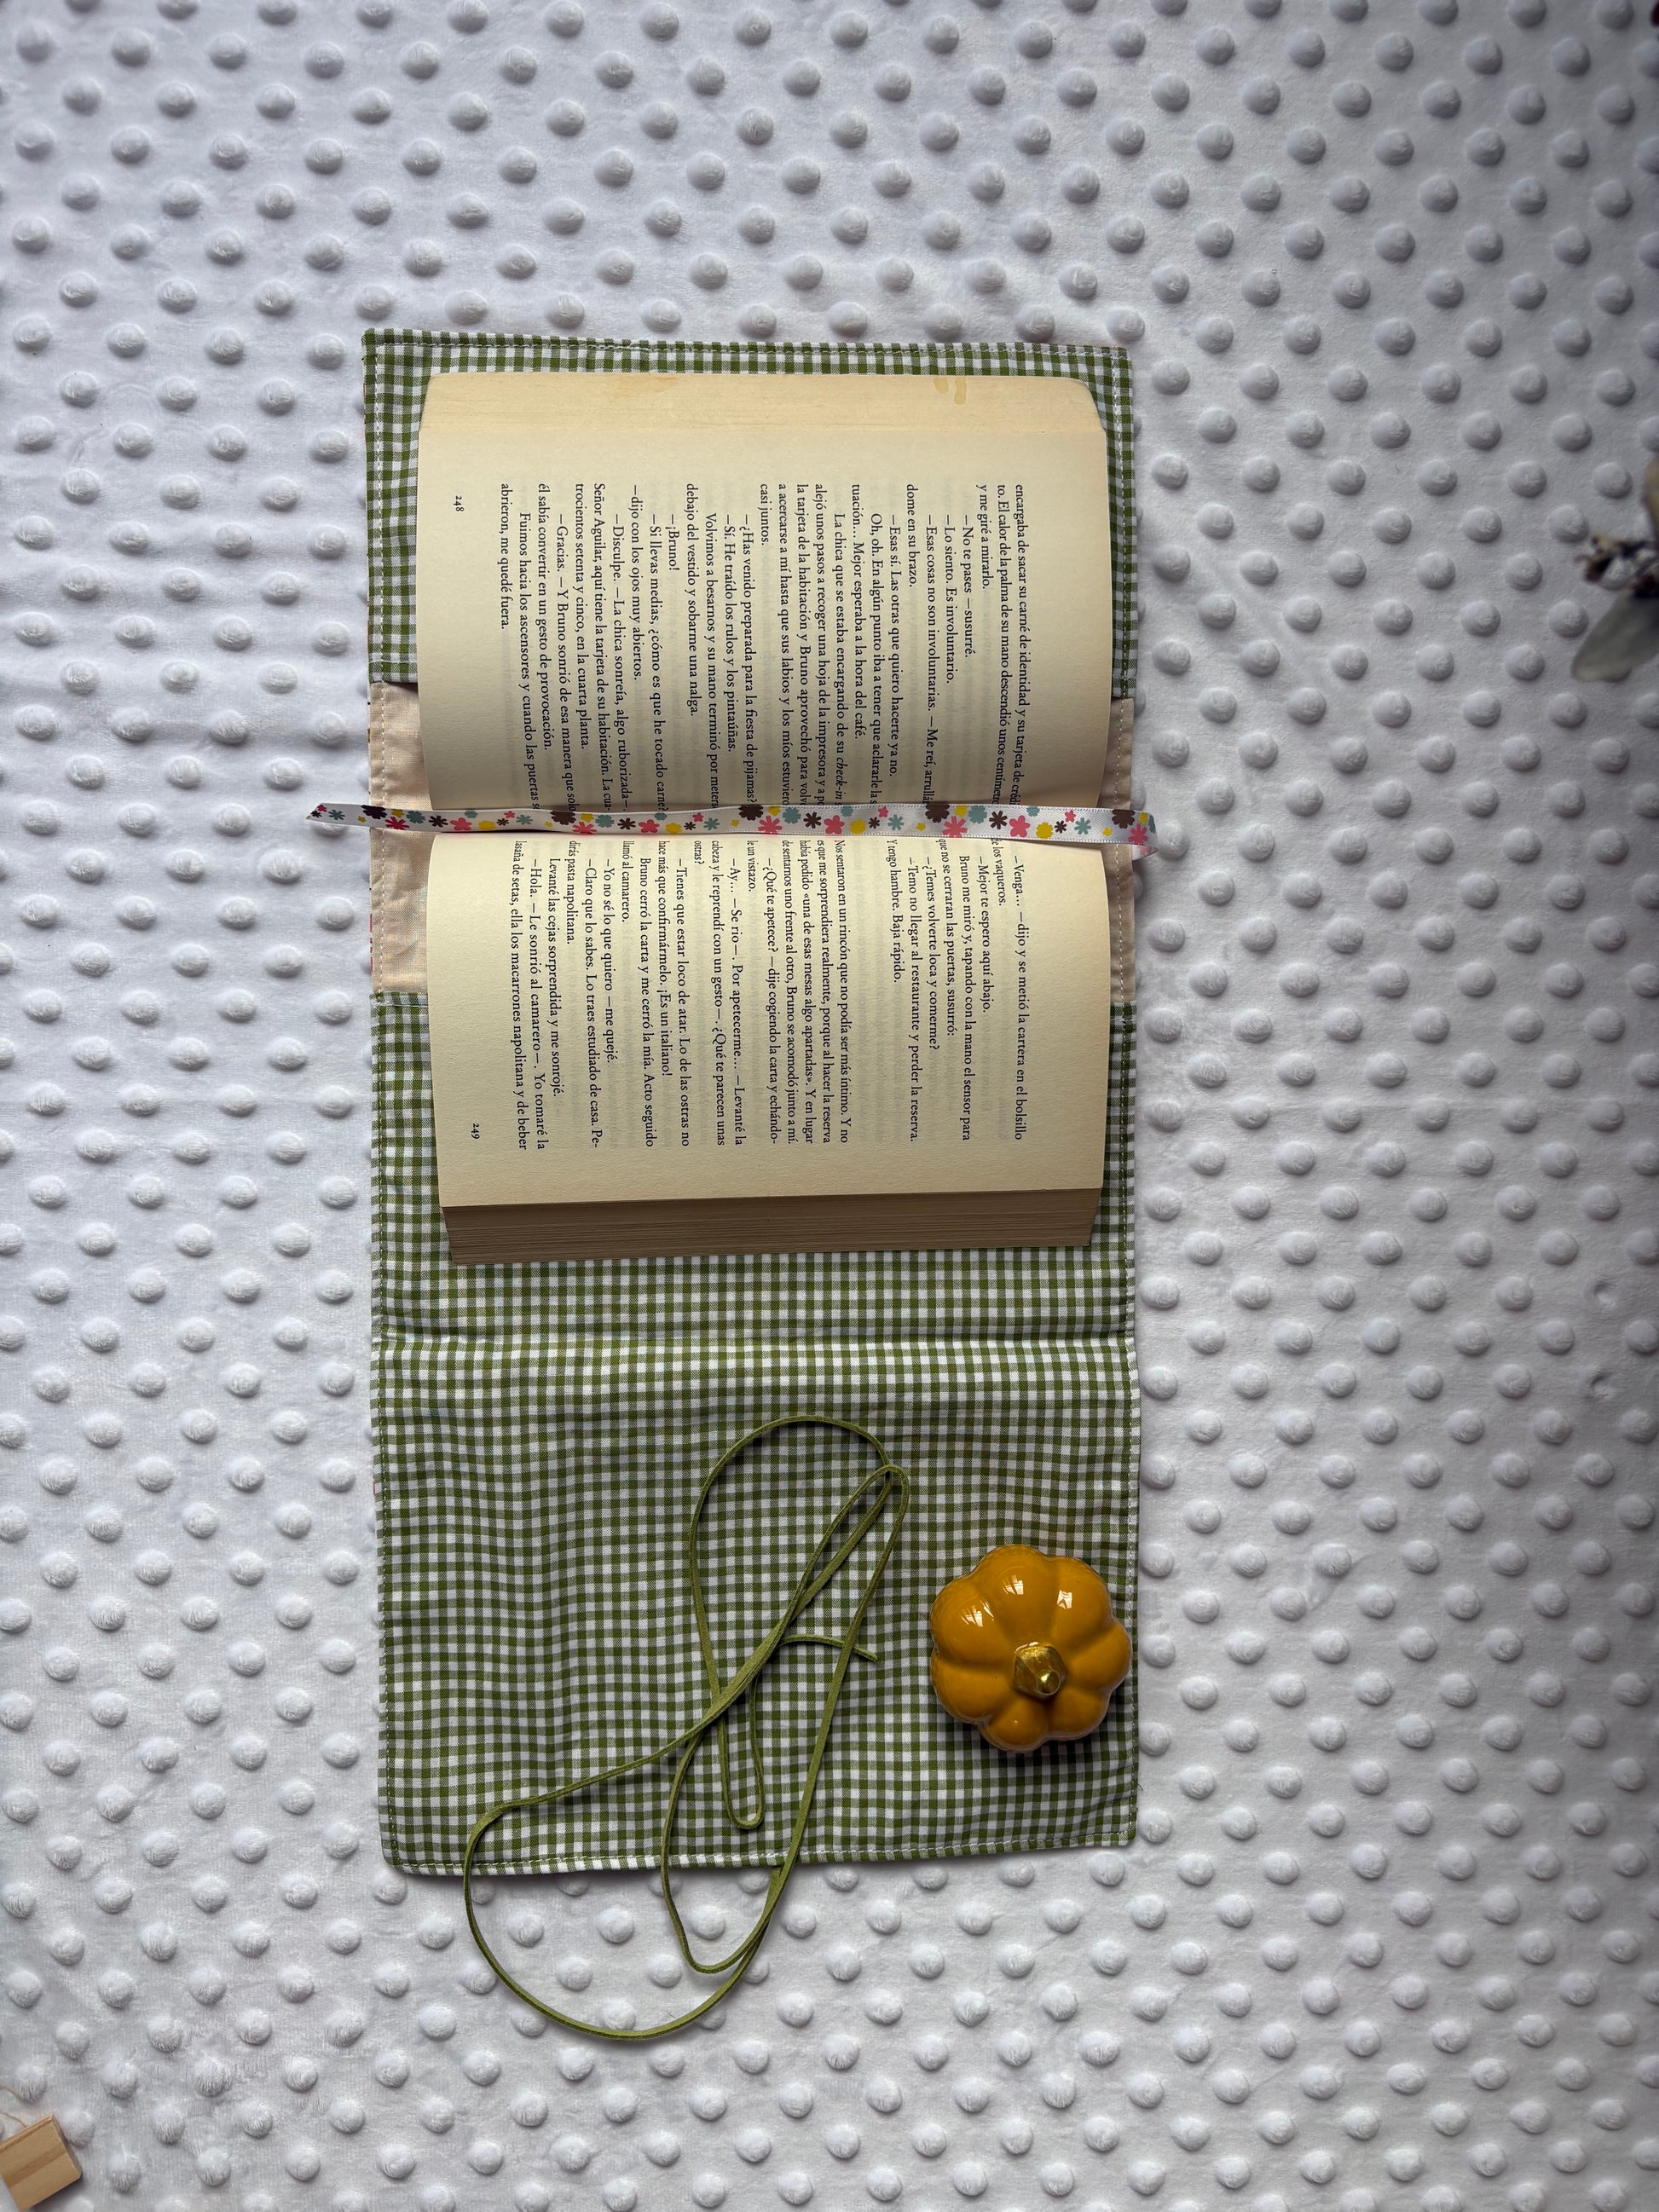 encargaba de sacar su carné de identidad y su tarjeta de
to. El calor de la palma de su mano descendió unos
y me giré a mirarlo.
—No te pases —susurré.
—Lo siento. Es involuntario.
—Esas cosas no son involuntarias. —Me reí,
dome en su brazo.
—Esas sí. Las otras que quiero hacerte ya no.
Oh, oh. En algún punto iba a tener que aclararle la
tuación… Mejor esperaba a la hora del café.
La chica que se estaba encargando de su check-in
alejó unos pasos a recoger una hoja de la impresora y a
la tarjeta de la habitación y Bruno aprovechó para
a acercarse a mí hasta que sus labios y los míos
casi juntos.
—¿Has venido preparada para la fiesta de pijamas?
—Sí. He traído los rulos y los pintaúñas.
Volvimos a besarnos y su mano terminó por
debajo del vestido y sobarme una nalga.
—¡Bruno!
—Si llevas medias, ¿cómo es que he tocado carne?
—dijo con los ojos muy abiertos.
—Disculpe. —La chica sonreía, algo ruborizada—.
Señor Aguilar, aquí tiene la tarjeta de su habitación. La cua-
trocientos setenta y cinco, en la cuarta planta.
—Gracias. —Y Bruno sonrió de esa manera que solo
él sabía convertir en un gesto de provocación.
Fuimos hacia los ascensores y cuando las puertas
abrieron, me quedé fuera.
248
—Venga… —dijo y se metió la cartera en el bolsillo
de los vaqueros.
—Mejor te espero aquí abajo.
Bruno me miró y, tapando con la mano el sensor para
que no se cerraran las puertas, susurró:
—¿Temes volverte loca y comerme?
—Temo no llegar al restaurante y perder la reserva.
Y tengo hambre. Baja rápido.
Nos sentaron en un rincón que no podía ser más íntimo. Y no
es que me sorprendiera realmente, porque al hacer la reserva
había pedido «una de esas mesas algo apartadas». Y en lugar
de sentarnos uno frente al otro, Bruno se acomodó junto a mí.
—¿Qué te apetece? —dije cogiendo la carta y echándo-
le un vistazo.
—Ay… —Se rio—. Por apetecerme… —Levanté la
cabeza y le reprendí con un gesto—. ¿Qué te parecen unas
ostras?
—Tienes que estar loco de atar. Lo de las ostras no
hace más que confirmármelo. ¡Es un italiano!
Bruno cerró la carta y me cerró la mía. Acto seguido
llamó al camarero.
—Yo no sé lo que quiero —me quejé.
—Claro que lo sabes. Lo traes estudiado de casa. Pe-
dirás pasta napolitana.
Levanté las cejas sorprendida y me sonrojé.
—Hola. —Le sonrió al camarero—. Yo tomaré la
lasaña de setas, ella los macarrones napolitana y de beber
249